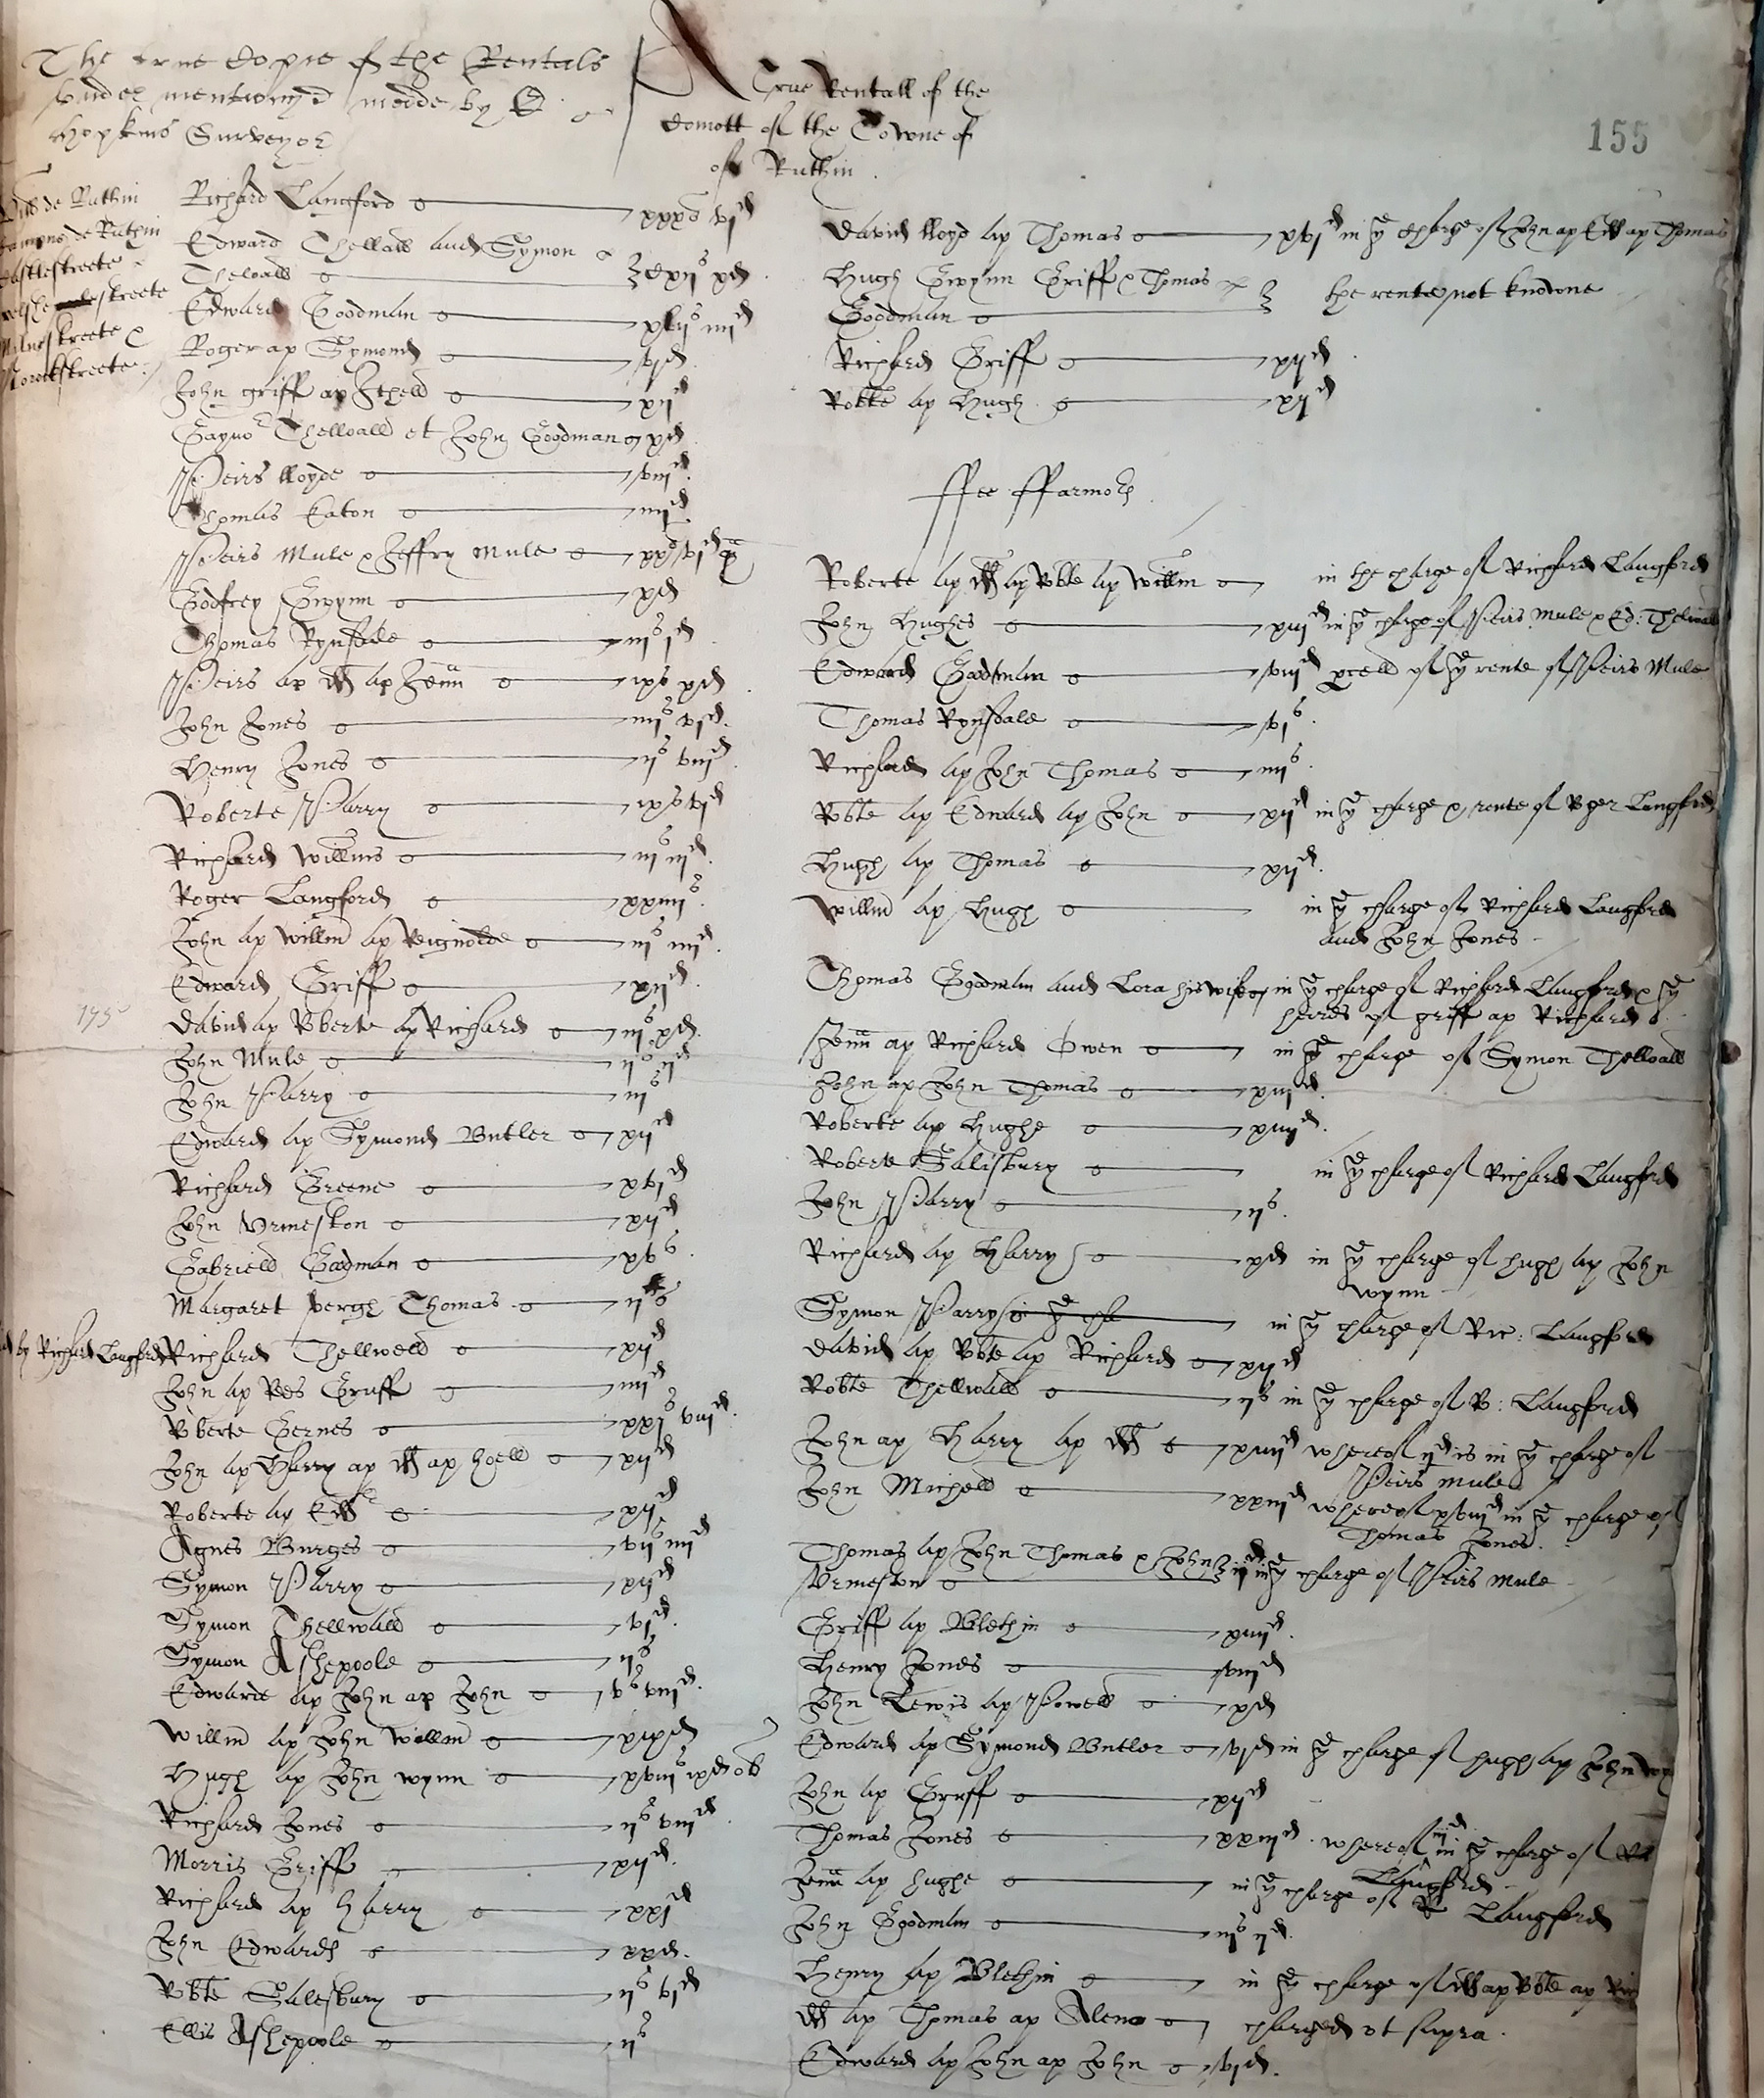 The true Copie of the Rentals
under mentionyd made by E
Hopkins Surveyor
A True Rentall of the
Comott of the Towne of
of Ruthin
155
Vill de Ruthin
de Ruthin
Castlestreete
Welshestreete
Milnstreete &
streete
Richard Langford xxxs vjd
Edward Thellall and Symon
Theloall xijs xd
Edward Goodman xlijs iiijd
Roger ap Symond vjd
John griff ap Ithell xijd
Gaynor Thelloall et John Goodman xd
Peirs lloyde viijd
Thomas Eaton iiijd
Peirs Mule & Jeffry Mule xxs vjd
Godfrey Gwynn xd
Thomas Rynsdale iijs jd
Peirs ap dd ap Jenn ixs xd
John Jones iiijs vjd
Henry Jones ijs viijd
Roberte Parry ixs vjd
Richard Willms iijs iijd
Roger Langford xxiiijs
John ap Willm ap Reignolde iijs iiijd
Edward Griff xijd
175
David ap Roberte ap Richard iijs xd
John Mule ijs ijd
John Parry iijs
Edward ap Symond Butler xijd
Richard Greene xvjd
John Urmeston xijd
Gabriell Goodman xvs
Margaret vergh Thomas ijs
by Richard Langford
Richard Thellwell xijd
John ap Rees Gruff iiijd
Roberte Gernes xxjs viijd
John ap Harry ap dd ap Hoell xijd
Roberte ap Edd xijd
Agnes Burges vijs iiijd
Symon Parry xijd
Symon Thellwall vjd
Symon Ashepoole ijs
Edwarde ap John ap John vs viijd
Willm ap John Willm xixd
Hugh ap John wynn xviijs ixd ob
Richard Jones ijs viijd
Morris Griff xijd
Richard ap Harry xxjd
John Edwards xxd
Robte Salesbury ijs vjd
Ellis Ashepoole ijs
David lloyd ap Thomas xvjd in ye charge of John ap Edd ap Thomas
Hugh Gwynn Griff & Thomas
Goodman the rente not knowne
Richard Griff xijd
Robte ap Hugh xijd
ffee ffarmors
Roberte ap dd ap Robte ap Willm in the charge of Richard Langford
John Hughes xiijd in ye charge of Peirs Mule & Ed: Thelwall
Edward Goodman viijd pcell of ye rente of Peirs Mule
Thomas Rynsdale vjs
Richard ap John Thomas iiijs
Robte ap Edward ap John xijd in ye charge & rente of Roger Langford
Hugh ap Thomas xijd
Willm ap Hugh in ye charge of Richard Langford
and John Jones
Thomas Goodman and Lora his wife in ye charge of Richard Langford & ye
heires of griff ap Richard
Jenn ap Richard Owen in ye charge of Symon Thelloall
John ap John Thomas xiijd
Roberte ap Hughe xiiijd
Roberte Salisbury in ye charge of Richard Langford
John Parry ijs
Richard ap Harry xd in ye charge of hugh ap John
wynn
Symon Parry in ye charge of Ric: Langford
David ap Robte ap Richard xijd
Robte Thellwall ijs in ye charge of R: Langford
John ap Harry ap dd xiiijd whereof ijd is in ye charge of
Peirs Mule
John Michell xxiijd whereof xviijd in ye charge of
Thomas Jones
Thomas ap John Thomas & John
Urmeston ijd in ye charge of Peirs Mule
Griff ap Blethin xiiijd
Henry Jones viijd
John Lewis ap Powell xd
Edward ap Symond Butler vjd in ye charge of hugh ap John wyn
John ap Gruff xijd
Thomas Jones xxiijd whereof iijd in ye charge of
Langford
Jenn ap hughe in ye charge of R Langford
John Goodman iijs ijd
Henry ap Blethin in ye charge of dd ap Robte ap Ric
dd ap Thomas ap Alena charged ut supra
Edward ap John ap John vjd